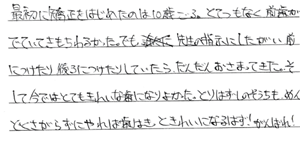 最初に矯正をはじめたのは10歳ごろ。とてもなく前歯が
でていてきもちわるかった。でも 先生の指示にしたがい前
につけたり後ろにつけたりしていたら、だんだんおさまってきた。そ
して今ではとてもきれいな歯になりよかった。とりはずしのそうちも、めん
どくさがらずにやれば歯はき、ときれいになるはず！がんばれ！